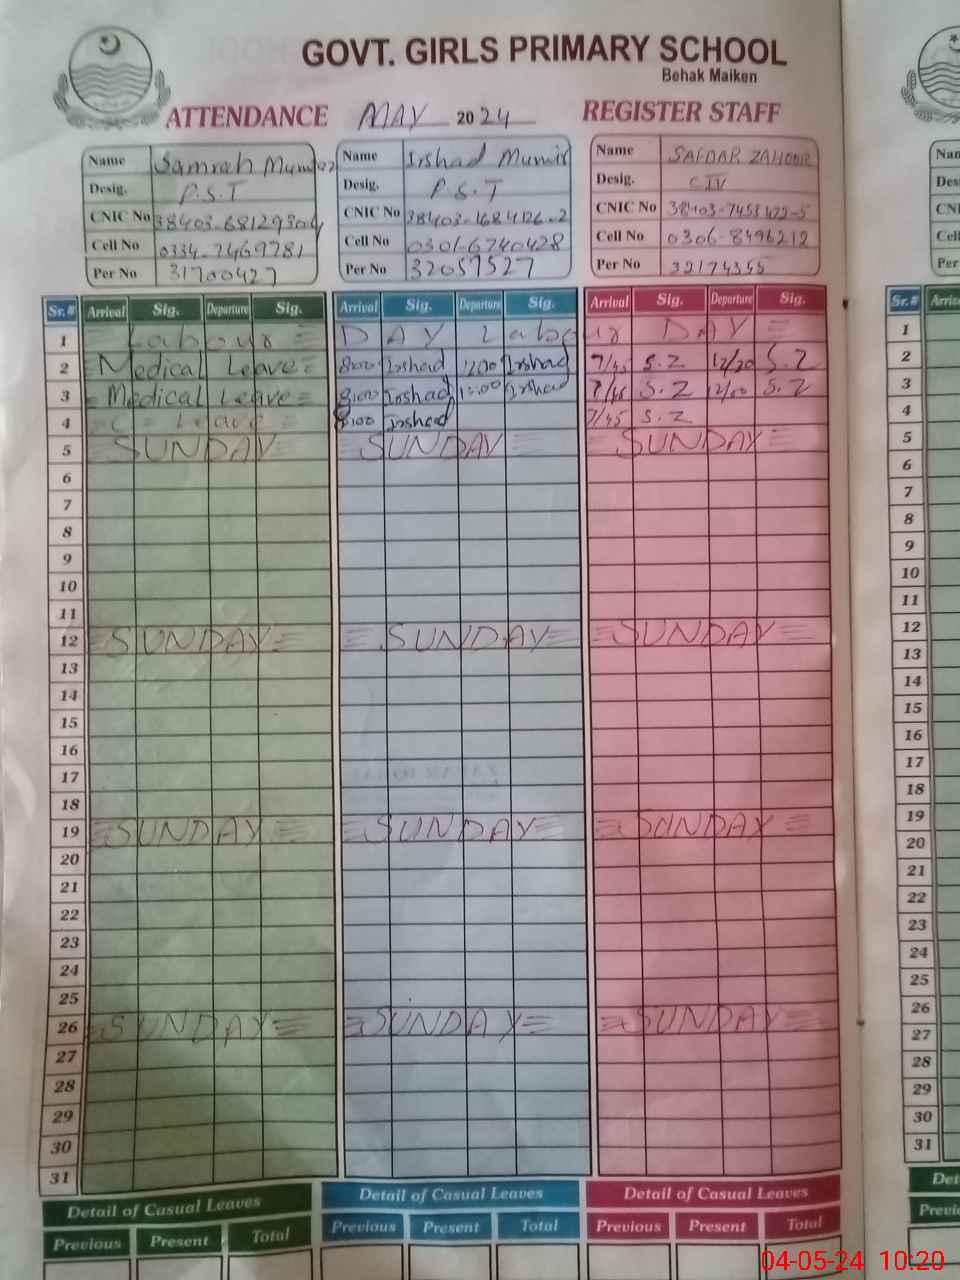 GOVT. GIRLS PRIMARY SCHOOL
Behak Maiken
ATTENDANCE MAY 2024 REGISTER STAFF
Name Samrah Name Irshad Munir Name SAFDAR ZAHOOR
Desig. P.S.T Desig. P.S.T Desig. C IV
CNIC No CNIC No 38403-1684126-2 CNIC No 38403-7453472-5
Cell No 0334-7469781 Cell No 0306-6740428 Cell No 0306-8496212
Per No 31700427 Per No 32057527 Per No 32174355
Sr.# Arrival Sig. Departure Sig. Arrival Sig. Departure Sig. Arrival Sig. Departure Sig. Sr.#
1 Labour DAY Labour DAY 1
2 Medical Leave 8:00 Irshad 12:00 Irshad 7/45 S.Z 12/20 S.Z 2
3 Medical Leave 8:00 Irshad 12:00 Irshad 7/45 S.Z 12/00 S.Z 3
4 C - Leave 8:00 Irshad 7/45 S.Z 4
5 SUNDAY SUNDAY SUNDAY 5
6 6
7 7
8 8
9 9
10 10
11 11
12 SUNDAY SUNDAY SUNDAY 12
13 13
14 14
15 15
16 16
17 17
18 18
19 SUNDAY SUNDAY SUNDAY 19
20 20
21 21
22 22
23 23
24 24
25 25
26 SUNDAY SUNDAY SUNDAY 26
27 27
28 28
29 29
30 30
31 31
Detail of Casual Leaves Detail of Casual Leaves Detail of Casual Leaves
Previous Present Total Previous Present Total Previous Present Total
04-05-24 10:20